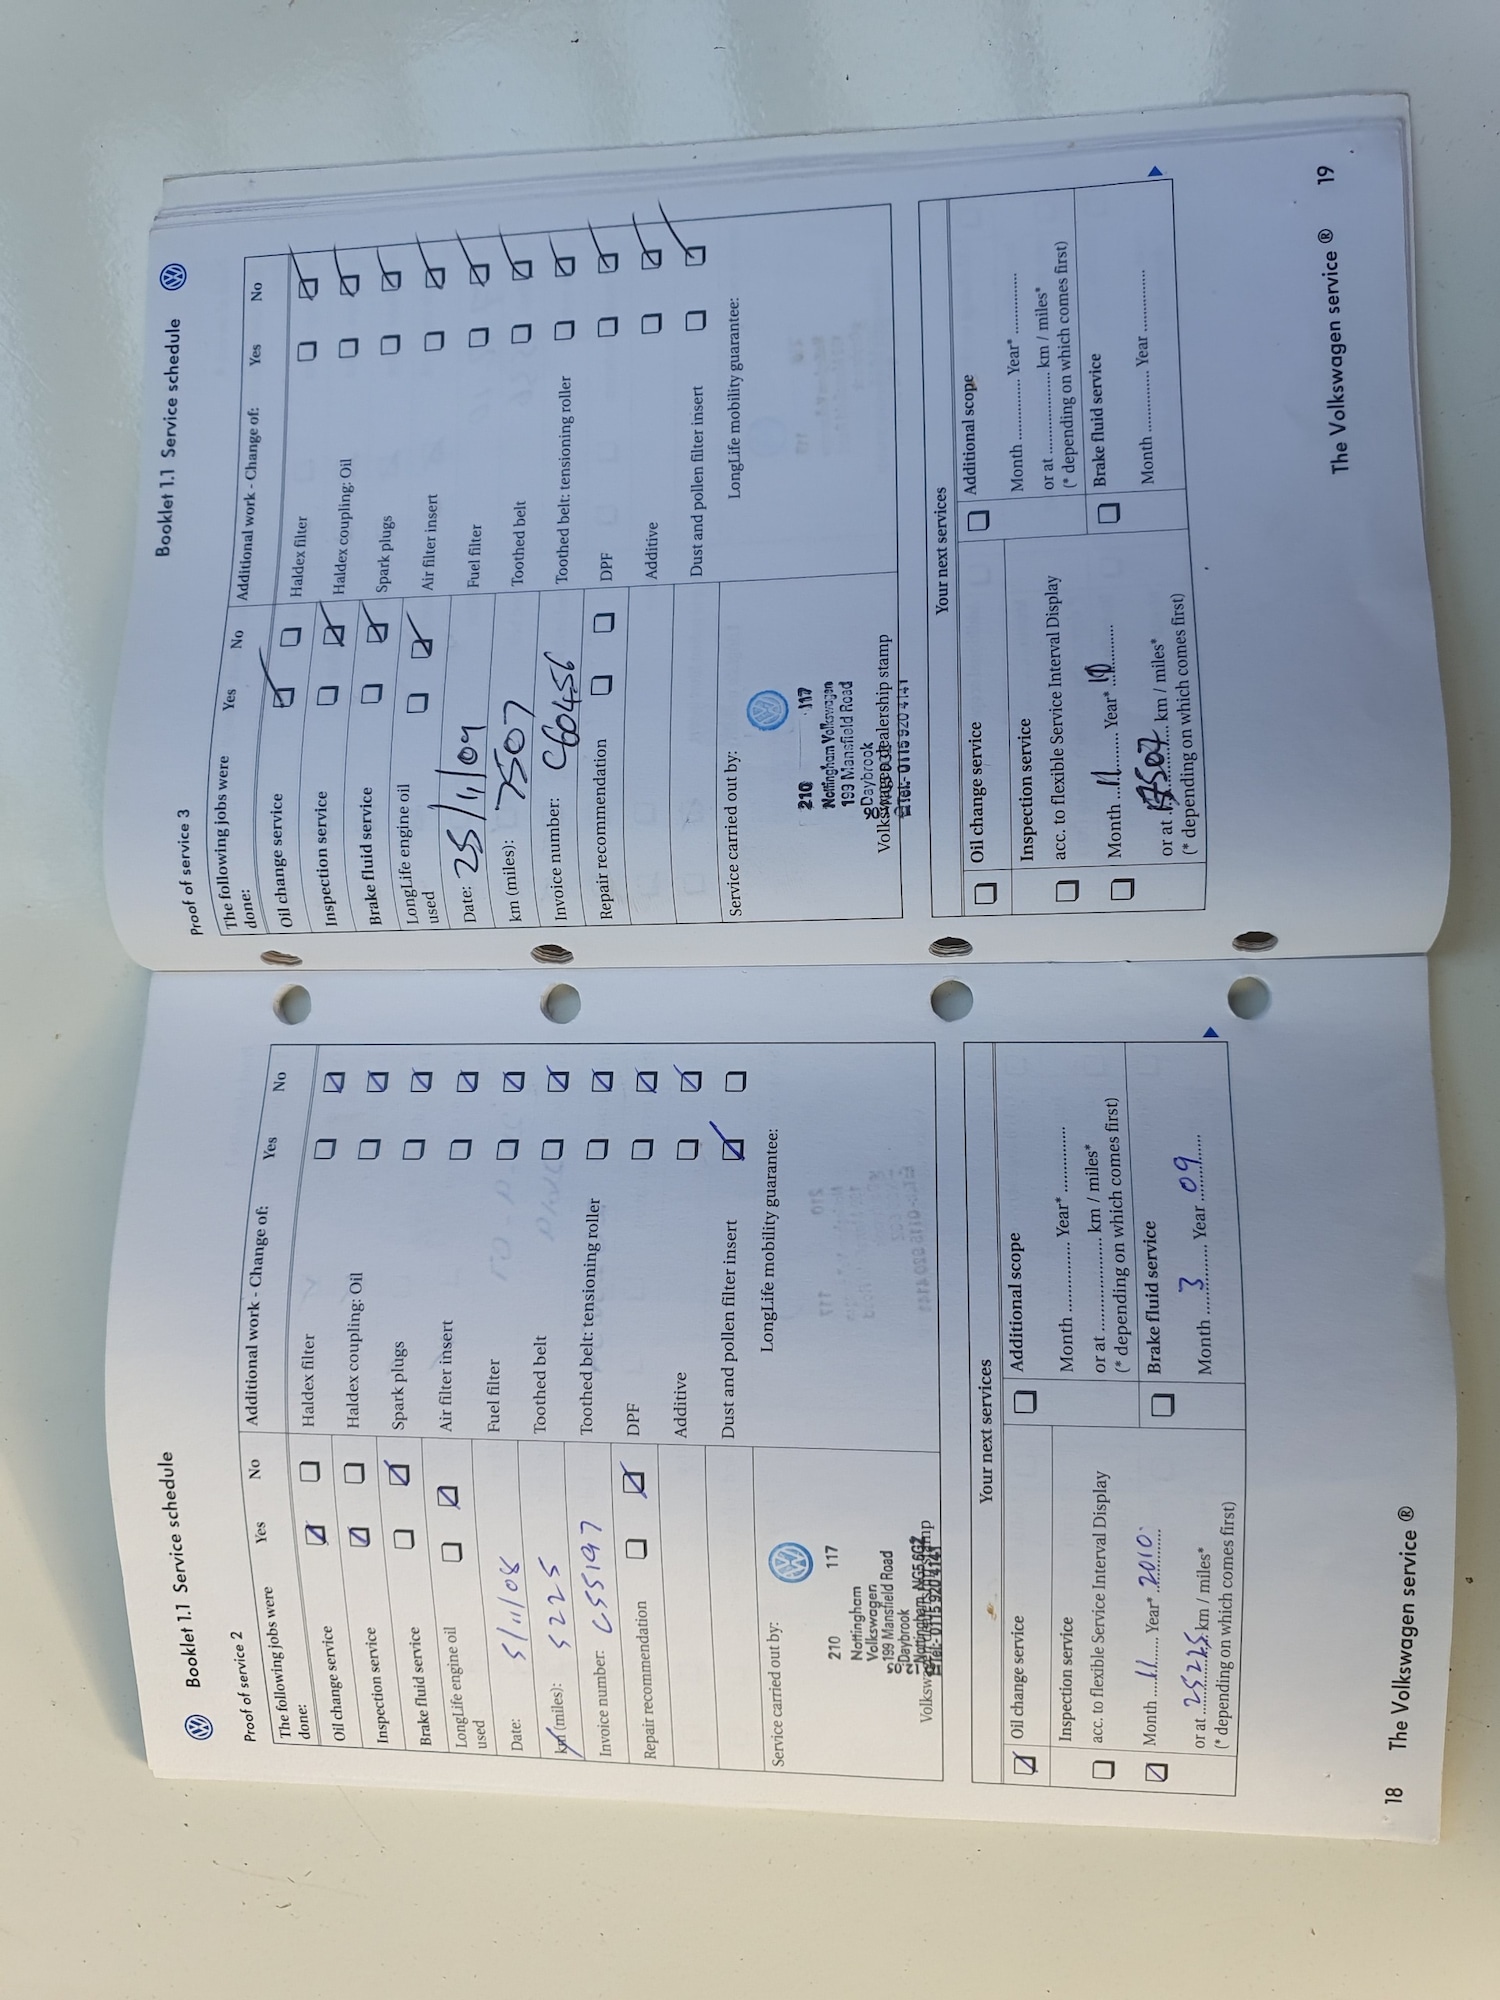 Booklet 1.1 Service schedule
Proof of service 2
The following jobs were done: Yes No
Oil change service
Inspection service
Brake fluid service
LongLife engine oil used
Date: 5/11/08
km (miles): 5225
Invoice number: C55197
Repair recommendation
Additional work - Change of: Yes No
Haldex filter
Haldex coupling: Oil
Spark plugs
Air filter insert
Fuel filter
Toothed belt
Toothed belt: tensioning roller
DPF
Additive
Dust and pollen filter insert
Service carried out by:
LongLife mobility guarantee:
210 117
Nottingham
Volkswagen
199 Mansfield Road
Daybrook
Nottingham NG5 6GZ
Tel:- 0115 920 4141
Your next services
Oil change service
Inspection service
acc. to flexible Service Interval Display
Month 11 Year* 2010
or at 25225 km / miles*
(* depending on which comes first)
Additional scope
Month ............... Year* ...............
or at ..................... km / miles*
(* depending on which comes first)
Brake fluid service
Month 3 Year 09
18 The Volkswagen service ®
Booklet 1.1 Service schedule
Proof of service 3
The following jobs were done: Yes No
Oil change service
Inspection service
Brake fluid service
LongLife engine oil used
Date: 25/11/09
km (miles): 7507
Invoice number: C60456
Repair recommendation
Additional work - Change of: Yes No
Haldex filter
Haldex coupling: Oil
Spark plugs
Air filter insert
Fuel filter
Toothed belt
Toothed belt: tensioning roller
DPF
Additive
Dust and pollen filter insert
Service carried out by:
LongLife mobility guarantee:
210 117
Nottingham Volkswagen
199 Mansfield Road
Daybrook
Volkswagen dealership stamp
Tel:- 0115 920 4141
Your next services
Oil change service
Inspection service
acc. to flexible Service Interval Display
Month 11 Year* 10
or at 17507 km / miles*
(* depending on which comes first)
Additional scope
Month ............... Year* ...............
or at ..................... km / miles*
(* depending on which comes first)
Brake fluid service
Month ............... Year ...............
The Volkswagen service ® 19